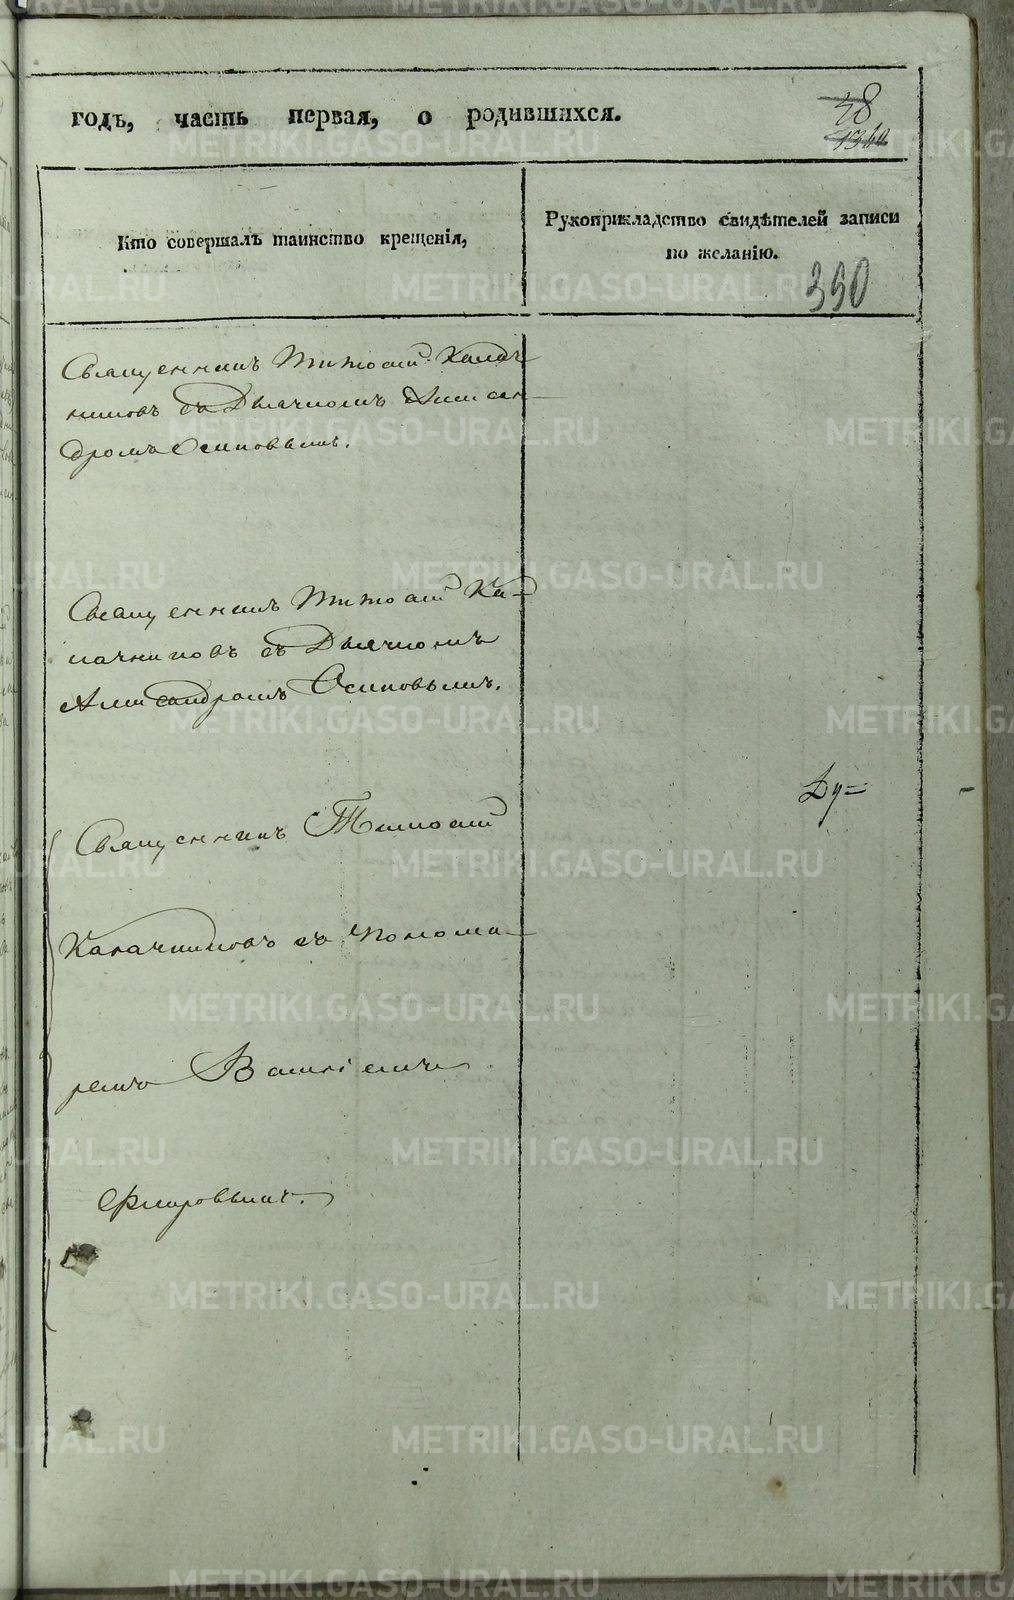 годъ, часть первая, о родившихся.
38
1340
Кто совершалъ таинство крещенія,
Рукоприкладство свидѣтелей записи
по желанію.
390
Священникъ Тимофей Калач
никовъ съ Дьячкомъ Алексан
дромъ Осиповымъ.
Священникъ Тимофей Ка-
лачниковъ съ Дьячкомъ
Александромъ Осиповымъ.
Священникъ Тимофей
Калачниковъ съ Понома-
ремъ Васи
Фиоровымъ.
Ду=
METRIKI.GASO-URAL.RU